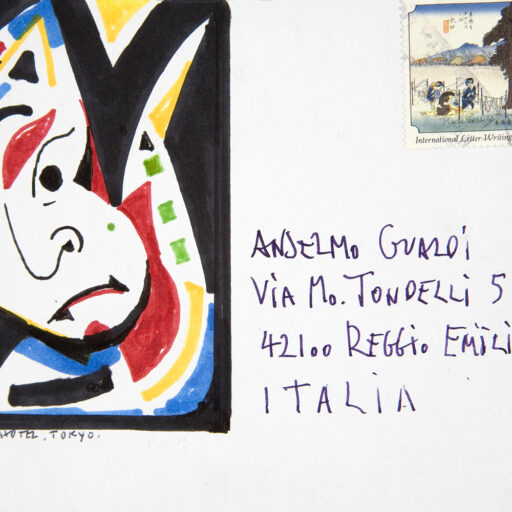 International Letter-Writing
ANSELMO GUALDI
VIA MO. TONDELLI 5
42100 REGGIO EMILI
ITALIA
HOTEL, TOKYO.